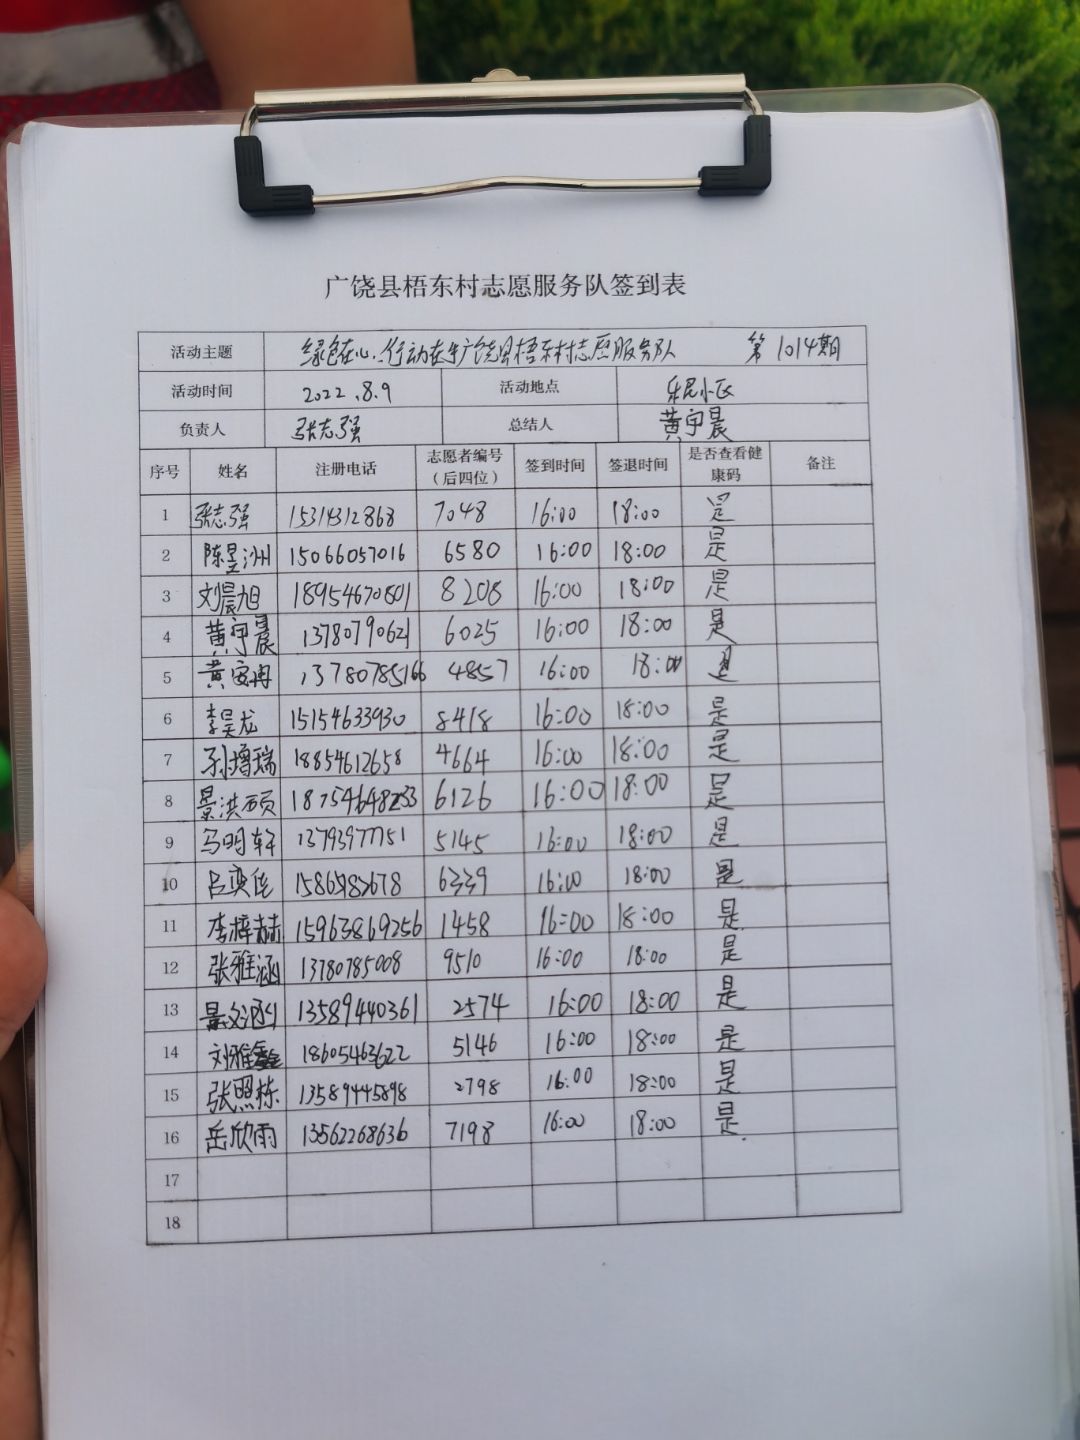 广饶县梧东村志愿服务队签到表
活动主题 绿色在心,行动在手广饶县梧东村志愿服务队 第1014期
活动时间 2022.8.9 活动地点 乐民小区
负责人 张志强 总结人 黄宇晨
序号 姓名 注册电话 志愿者编号(后四位) 签到时间 签退时间 是否查看健康码 备注
1 张志强 15314312868 7048 16:00 18:00 是
2 陈昱汐州 15066057016 6580 16:00 18:00 是
3 刘晨旭 18954670801 8208 16:00 18:00 是
4 黄宇晨 13780790621 6025 16:00 18:00 是
5 黄安冉 13780785166 4857 16:00 18:00 是
6 李昊龙 15154633930 8418 16:00 18:00 是
7 孙增瑞 18854612658 4664 16:00 18:00 是
8 景洪硕 6126 16:00 18:00 是
9 马明轩 13793977751 5145 16:00 18:00 是
10 吕奕佳 6339 16:00 18:00 是
11 李梓赫 15963869256 1458 16:00 18:00 是
12 张雅涵 13780785008 9510 16:00 18:00 是
13 13589440361 2574 16:00 18:00 是
14 刘雅鑫 18605463622 5146 16:00 18:00 是
15 张照栋 13589445898 2798 16:00 18:00 是
16 岳欣雨 13562268636 7198 16:00 18:00 是
17
18